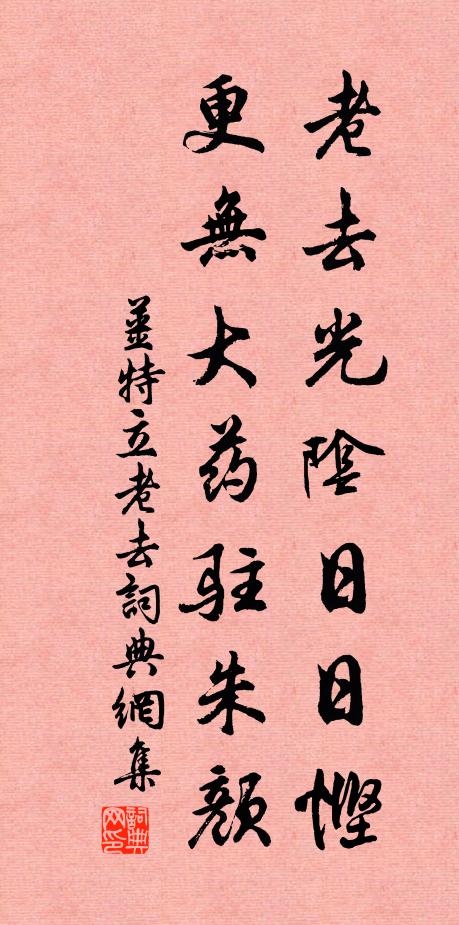 老去光陰日日慳
更無大药驻朱顔
薑特立老去詞典網集
詞典网印